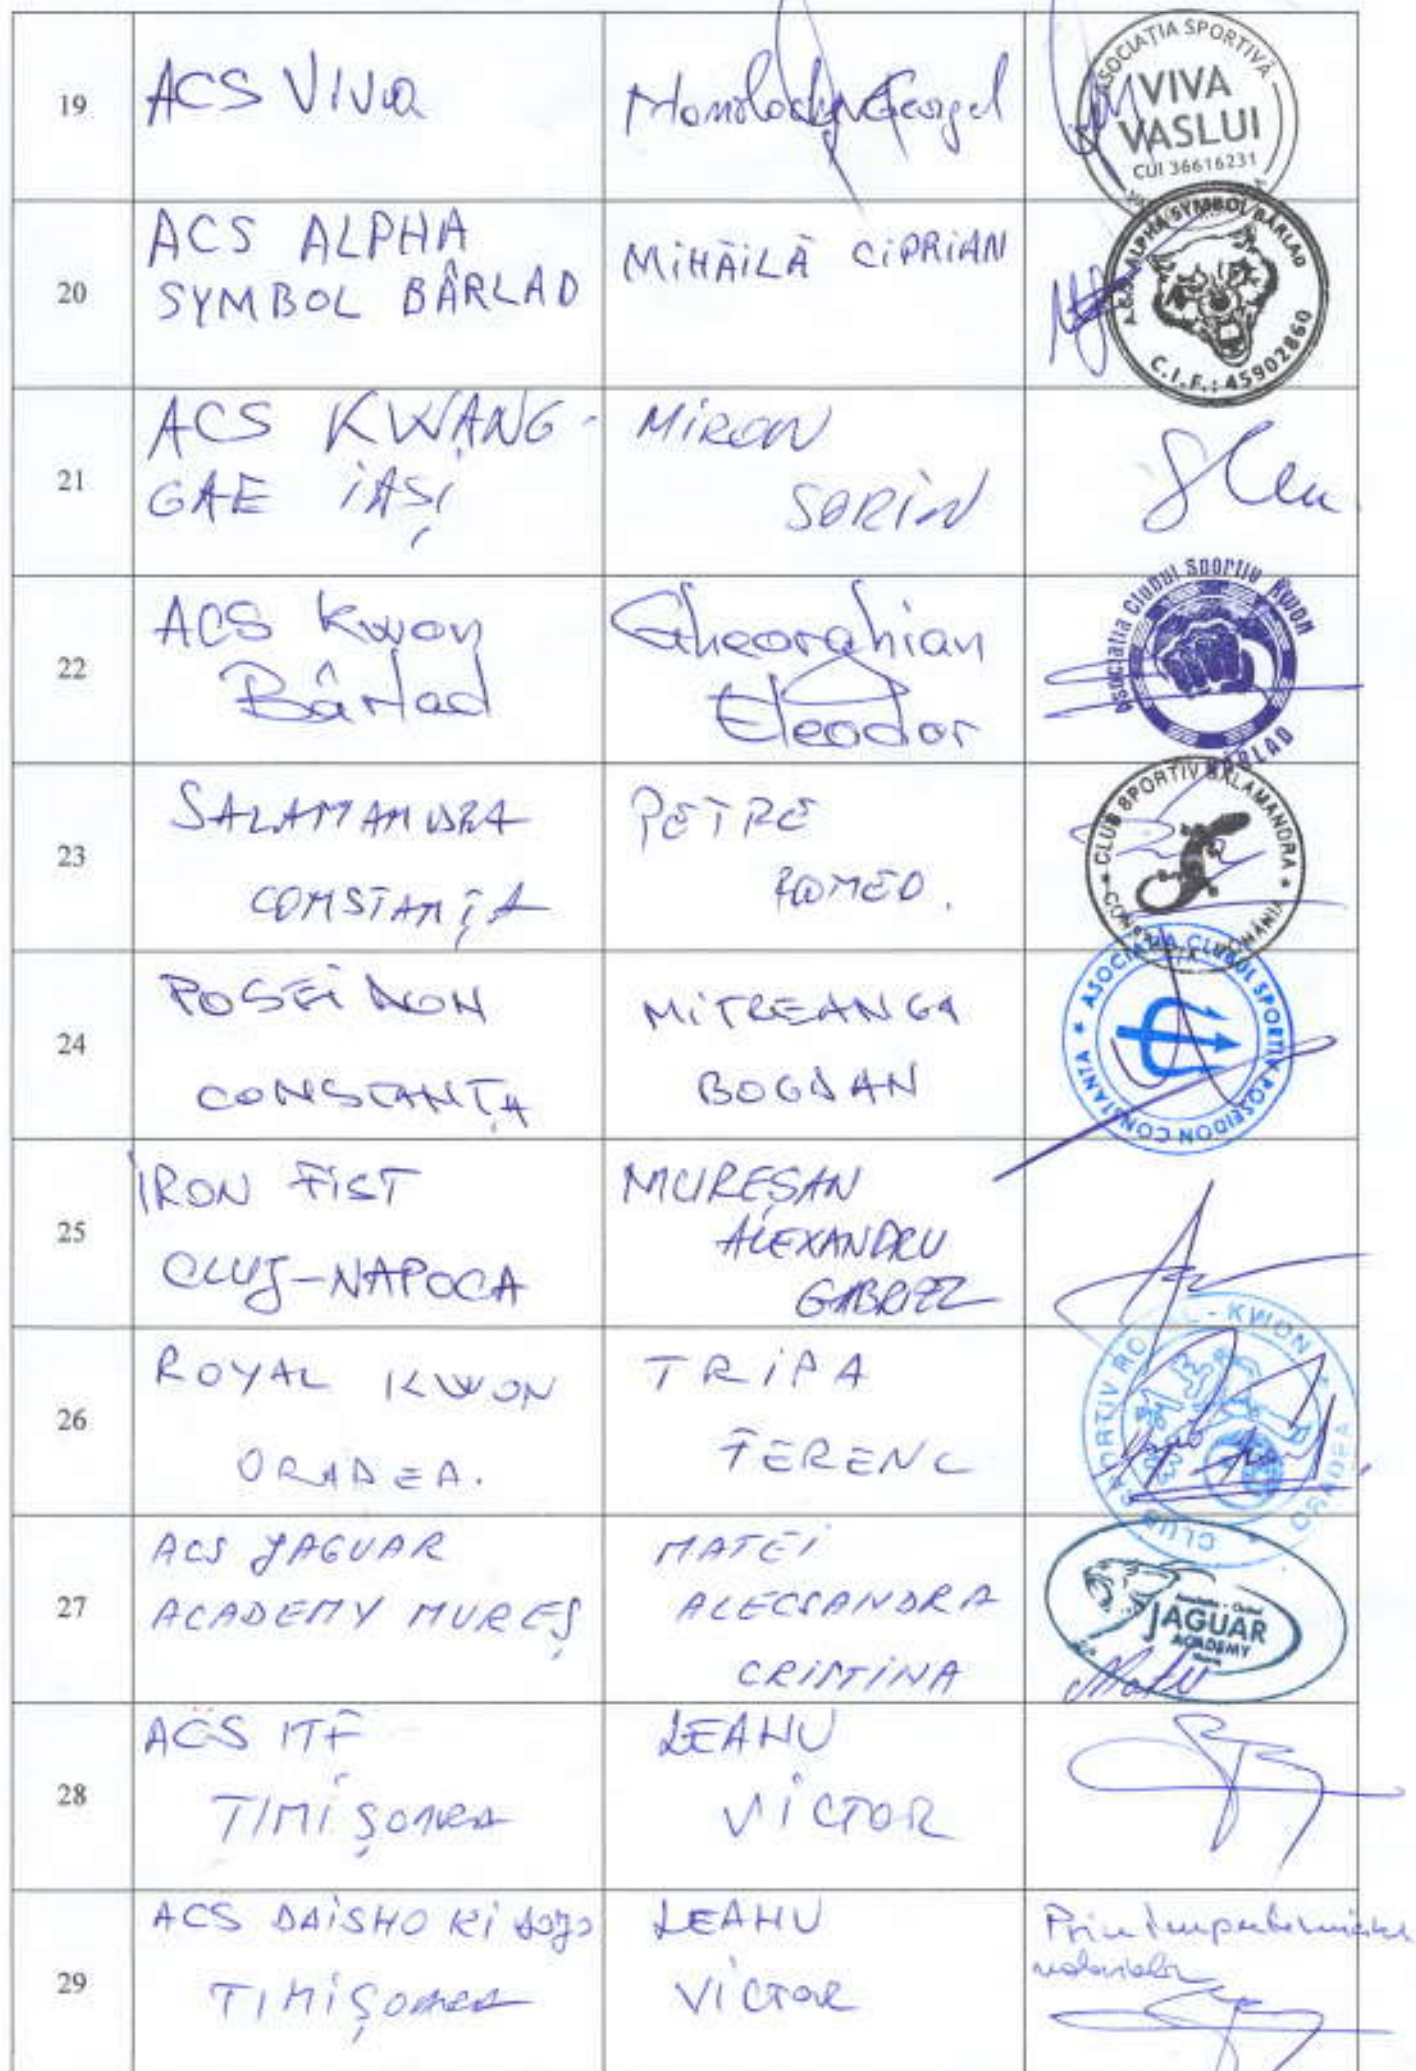 19
ACS Viva
Georgel
ASOCIAȚIA SPORTIVĂ
VIVA
VASLUI
CUI 36616231
20
ACS ALPHA
SYMBOL BÂRLAD
MIHĂILĂ CIPRIAN
ALPHA SYMBOL BÂRLAD
C.I.F.: 45902860
21
ACS KWANG-
GAE IAȘI
MIRON
SORIN
22
ACS Kwon
Bârlad
Gheorghian
Eleodor
Asociatia Clubul Sportiv Kwon
BÂRLAD
23
SALAMANDRA
CONSTANȚA
PETRE
ROMEO.
CLUB SPORTIV SALAMANDRA
ROMÂNIA
24
POSEIDON
CONSTANȚA
MITREANGA
BOGDAN
ASOCIATIA CLUBUL SPORTIV POSEIDON CONSTANTA
25
IRON FIST
CLUJ-NAPOCA
MUREȘAN
ALEXANDRU
GABRIEL
26
ROYAL KWON
ORADEA.
TRIPA
FERENC
CLUB SPORTIV ROYAL-KWON
ORADEA
27
ACS JAGUAR
ACADEMY MUREȘ
MATEI
ALECSANDRA
CRISTINA
JAGUAR
ACADEMY
28
ACS ITF
TIMIȘOARA
LEAHU
VICTOR
29
ACS DAISHO KI DOJO
TIMIȘOARA
LEAHU
VICTOR
Prin